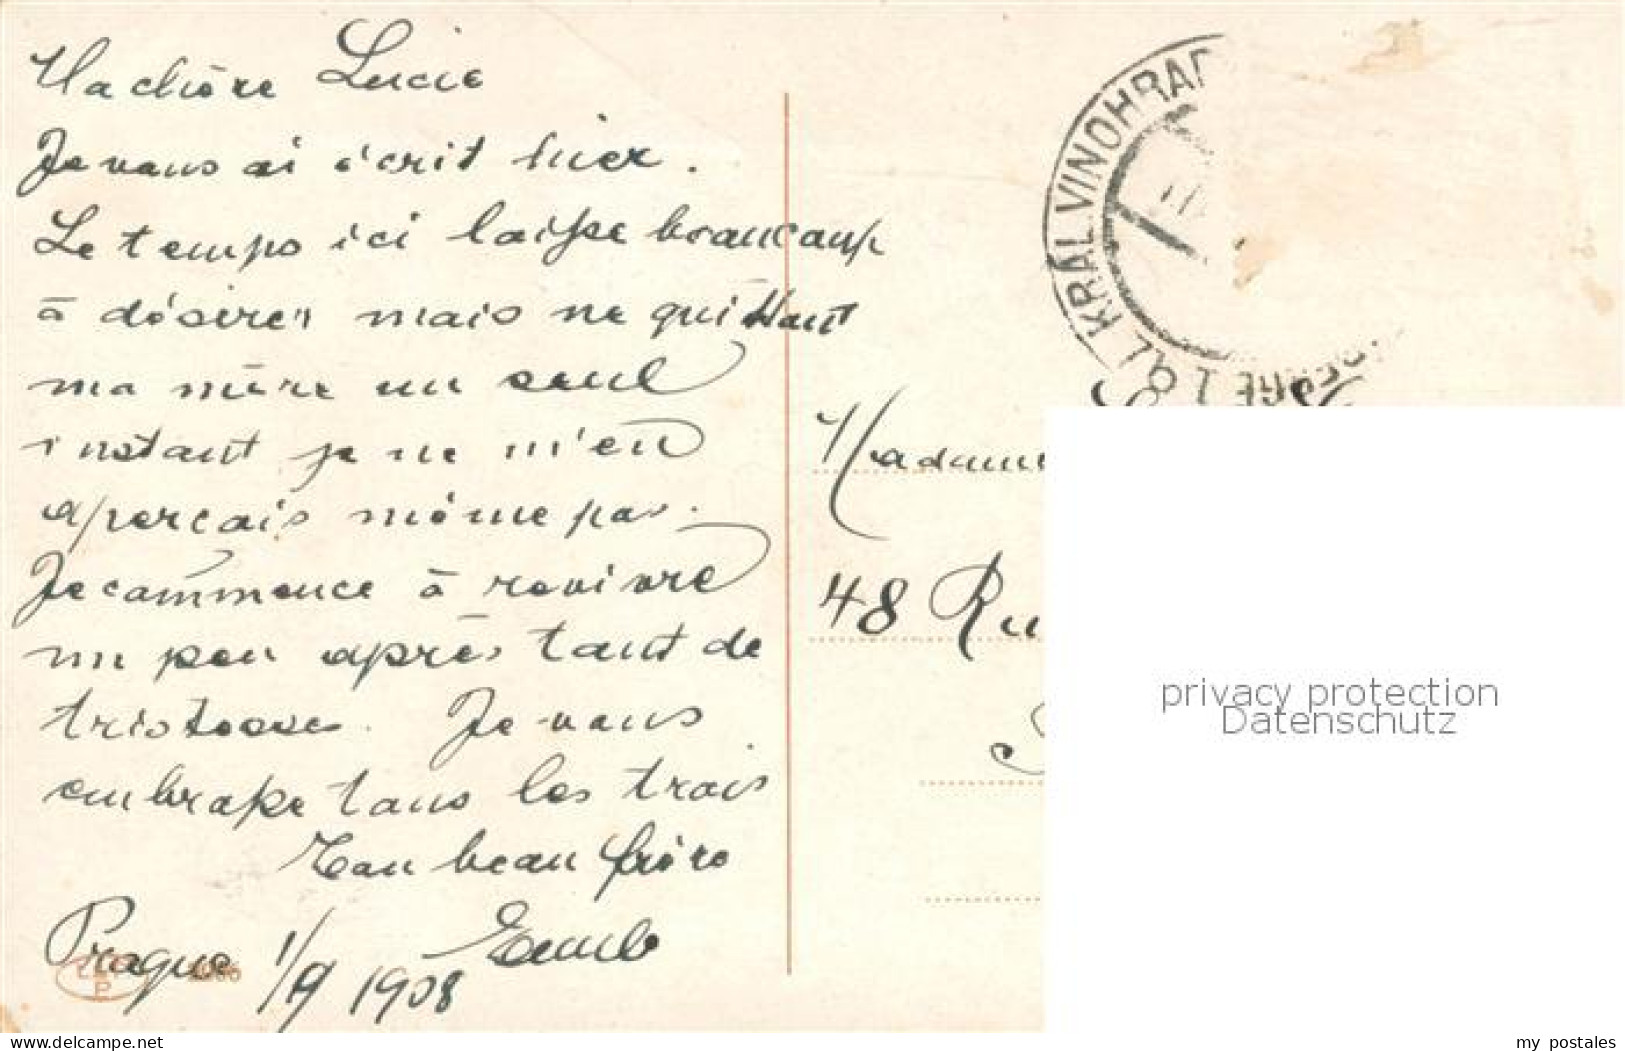 Ma chère Lucie
Je vous ai écrit hier.
Le temps ici laisse beaucoup
à désirer mais ne quittant
ma mère un seul
instant je ne m'en
aperçais même pas.
Je commence à revivre
un peu après tant de
tristesses. Je vous
embrasse tous les trois
Ton beau frère
Prague 1/9 1908
KRÁL. VINOHRAD
Madame
48 Ru
privacy protection
Datenschutz
delcampe.net
my_postales